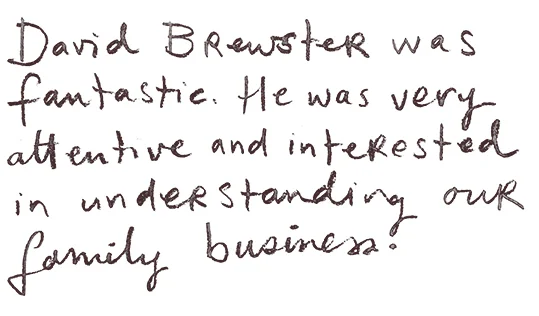 David Brewster was
fantastic. He was very
attentive and interested
in understanding our
family business.